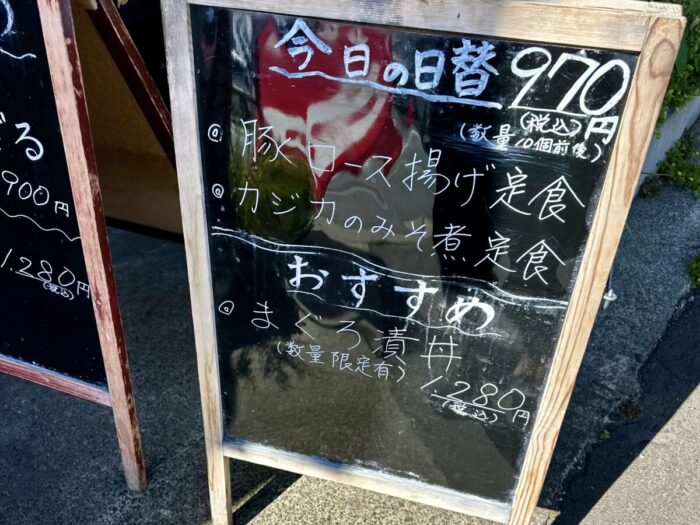 今日の日替 970円
(税込)
(数量10個前後)
◎豚ロース揚げ定食
◎カジカのみそ煮定食
おすすめ
◎まぐろ漬丼
(数量限定有) 1,280円
(税込)
ざる
900円
1,280円
(税込)